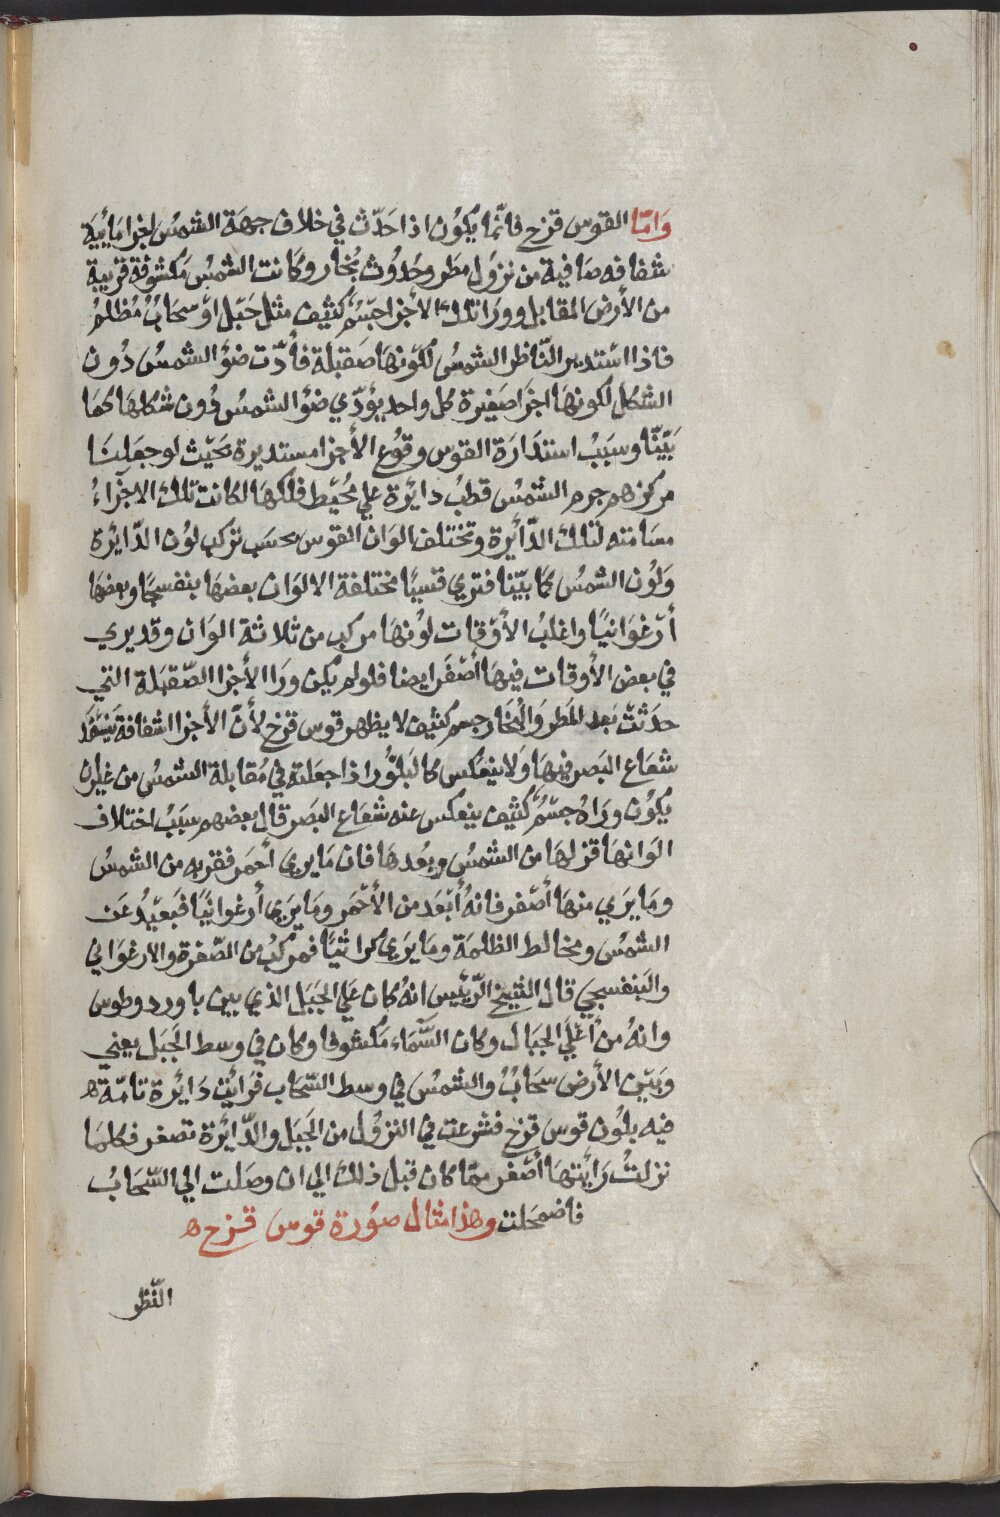 وَامّا القوس قزح فانّما يكوُن اذا حَدَث في خلاف جهَة الشمسُ اجزا مَائيَة
شفافه صَافية من نزوُل مطر وحَدوُث بُخار وكانت الشمسُ مكشوُفة قريبة
من الأرض المقابل وورَا تلك الأجزا جسْمٌ كثيف مثل جَبَل اوْ سحَابٌ مُظلمٌ
فاذا اسْتدبر النّاظر الشمسُ لكوْنها صَقيلة فأدّت ضوُ الشمسُ دُون
الشكل لكونهَا اجزَا صَغيرة كل واحد يؤدّي ضوُ الشمسُ دُون شكلهَا كما
بَيَّنّا وسَبَبُ استدَارَة القوس وقوُع الأجزا مستديرة بحَيْث لو جعَلنَا
مركزهم جرم الشمسُ قطبُ دائرة علي مُحيَط فلكهَا لكانت تلك الاجزَآءُ
مسَامته لتلك الدّائرة وتختلف الوَان القوس بحسَب تركب لوُن الدّايرة
وَلوُن الشمسُ كمَا بيّنا فتري قسيّا مختلفة الالوَان بعضهَا بنفسجيَا وبعضهَا
أرْغوَانيًا واغلبُ الأوْقات لوُنهَا مركب من ثلاثة الوَان وقد يري
في بعض الأوقات فيهَا أصْفَر ايضا فلو لم يكن ورَا الأجزا الصّقيلة التي
حدَثتْ بَعد المَطر وَالبُخَار جسم كثيف لا يظهر قوس قزح لأنّ الأجزا الشفافة يَنفذ
شعَاع البَصر فيهَا وَلا ينعَكس كالبَلوُّر اذا جعَلته في مُقابلة الشمسُ من غير ان
يكوُن ورَاهُ جسْمٌ كثيف ينعكس عنه شعَاع البَصر قال بعضهم سَبَبُ اختلاف
الوَانهَا قربها من الشمسُ وبعُدهَا فان مَا يري أحمَر فقربه من الشمسُ
ومَا يرَي منهَا أصْفر فانهُ أبْعَد من الأحْمَر ومَا يرَي أرغوَانيًا فبَعيْدٌ عَن
الشمْسُ ومخالط الظلمَة ومَا يرَي كراثيًا فمركبُ من الصّفرة والارغوَاني
والبَنفسجي قال الشيخ الرّئيس انهُ كان عَلي الجبَل الذي بين باورد وطوس
وانهُ من أعْلَي الجبَال وكان السَّمَاء مَكشوُفا وكان في وسط الجَبَل يعني
وبَيْن الأرض سحَابٌ والشمسُ في وسط السّحَاب فرَأيْت دَايرة تامّة
فيه بلوُن قوس قزح فشرعت في النزوُل من الجَبَل والدّايرة تصغر فكلما
نزلتُ رَايْتهَا أصْغر ممّا كان قبل ذلك الي ان وصَلت الي السّحَابُ
فاضمحَلت وهذا مثال صوُرة قوس قزح
النّظر